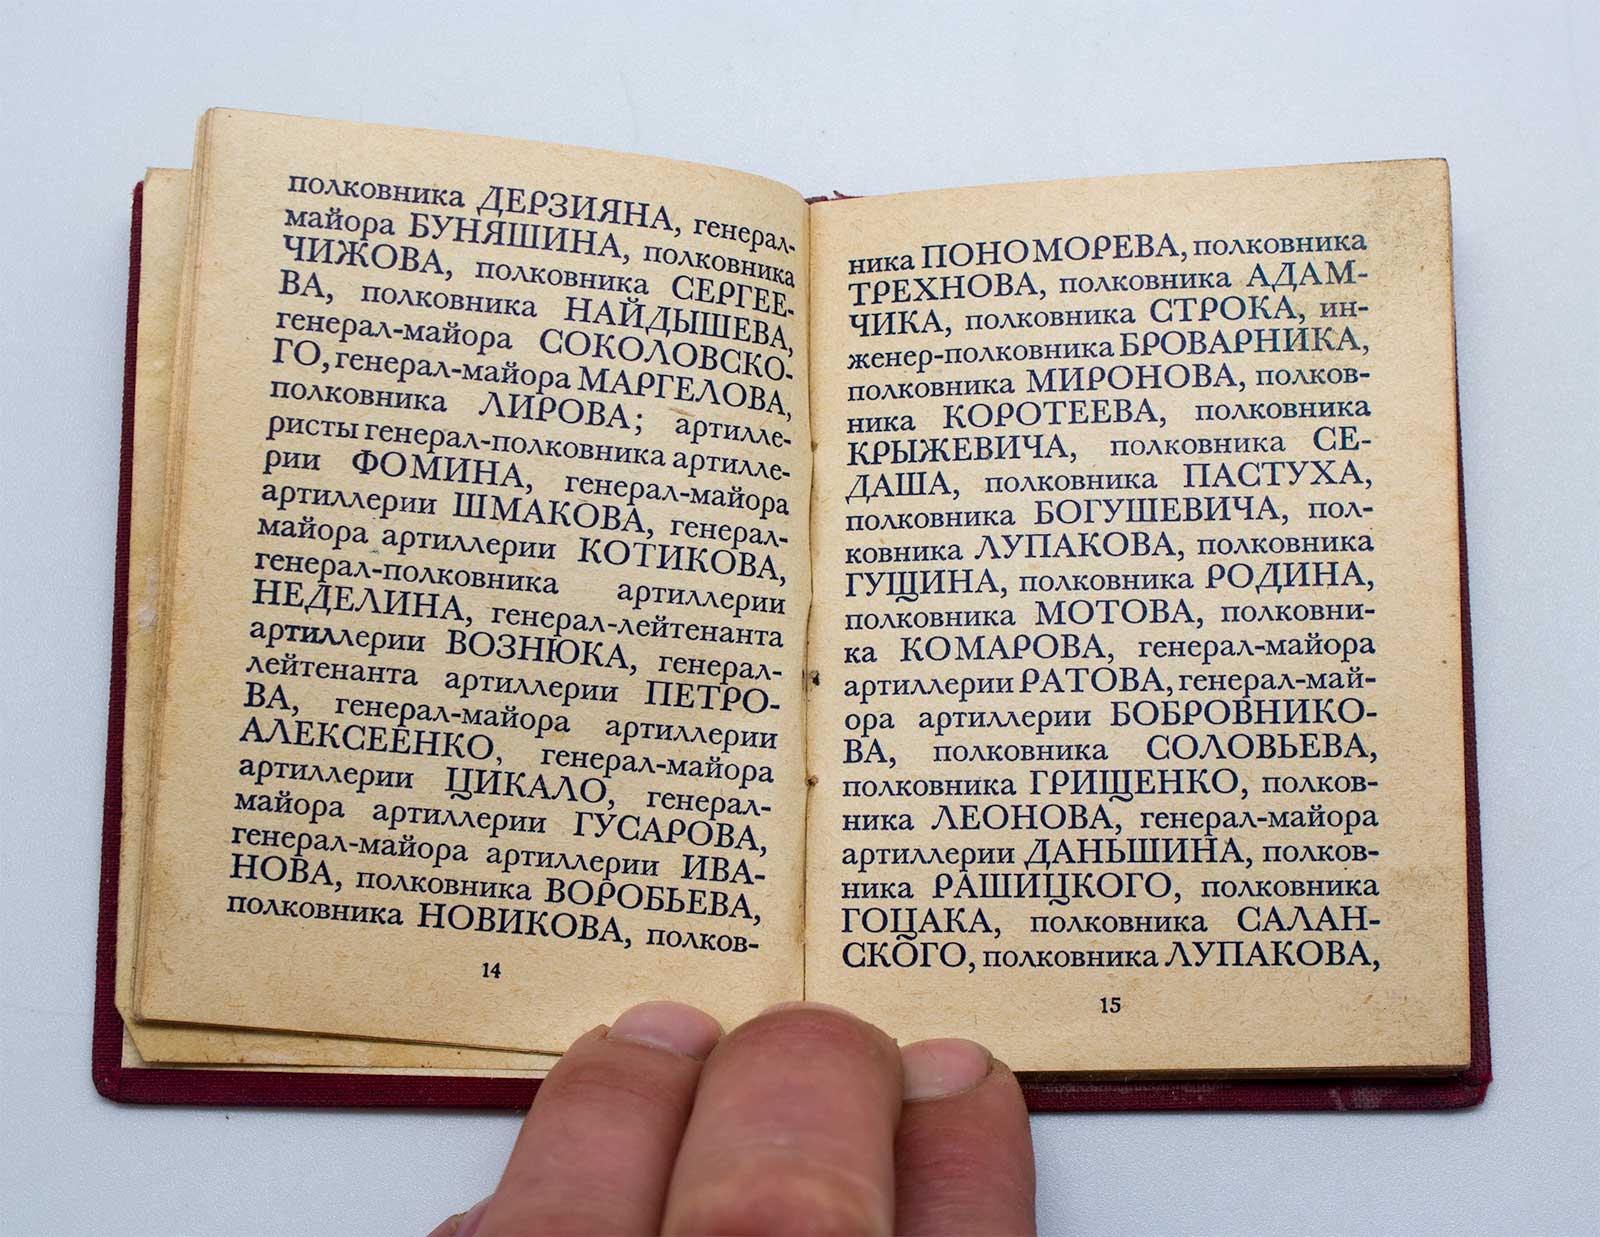 полковника ДЕРЗИЯНА, генерал-
майора БУНЯШИНА, полковника
ЧИЖОВА, полковника СЕРГЕЕ-
ВА, полковника НАЙДЫШЕВА,
генерал-майора СОКОЛОВСКО-
ГО, генерал-майора МАРГЕЛОВА,
полковника ЛИРОВА; артилле-
ристы генерал-полковника артилле-
рии ФОМИНА, генерал-майора
артиллерии ШМАКОВА, генерал-
майора артиллерии КОТИКОВА,
генерал-полковника артиллерии
НЕДЕЛИНА, генерал-лейтенанта
артиллерии ВОЗНЮКА, генерал-
лейтенанта артиллерии ПЕТРО-
ВА, генерал-майора артиллерии
АЛЕКСЕЕНКО, генерал-майора
артиллерии ЦИКАЛО, генерал-
майора артиллерии ГУСАРОВА,
генерал-майора артиллерии ИВА-
НОВА, полковника ВОРОБЬЕВА,
полковника НОВИКОВА, полков-
14
ника ПОНОМОРЕВА, полковника
ТРЕХНОВА, полковника АДАМ-
ЧИКА, полковника СТРОКА, ин-
женер-полковника БРОВАРНИКА,
полковника МИРОНОВА, полков-
ника КОРОТЕЕВА, полковника
КРЫЖЕВИЧА, полковника СЕ-
ДАША, полковника ПАСТУХА,
полковника БОГУШЕВИЧА, пол-
ковника ЛУПАКОВА, полковника
ГУЩИНА, полковника РОДИНА,
полковника МОТОВА, полковни-
ка КОМАРОВА, генерал-майора
артиллерии РАТОВА, генерал-май-
ора артиллерии БОБРОВНИКО-
ВА, полковника СОЛОВЬЕВА,
полковника ГРИЩЕНКО, полков-
ника ЛЕОНОВА, генерал-майора
артиллерии ДАНЬШИНА, полков-
ника РАШИЦКОГО, полковника
ГОЦАКА, полковника САЛАН-
СКОГО, полковника ЛУПАКОВА,
15